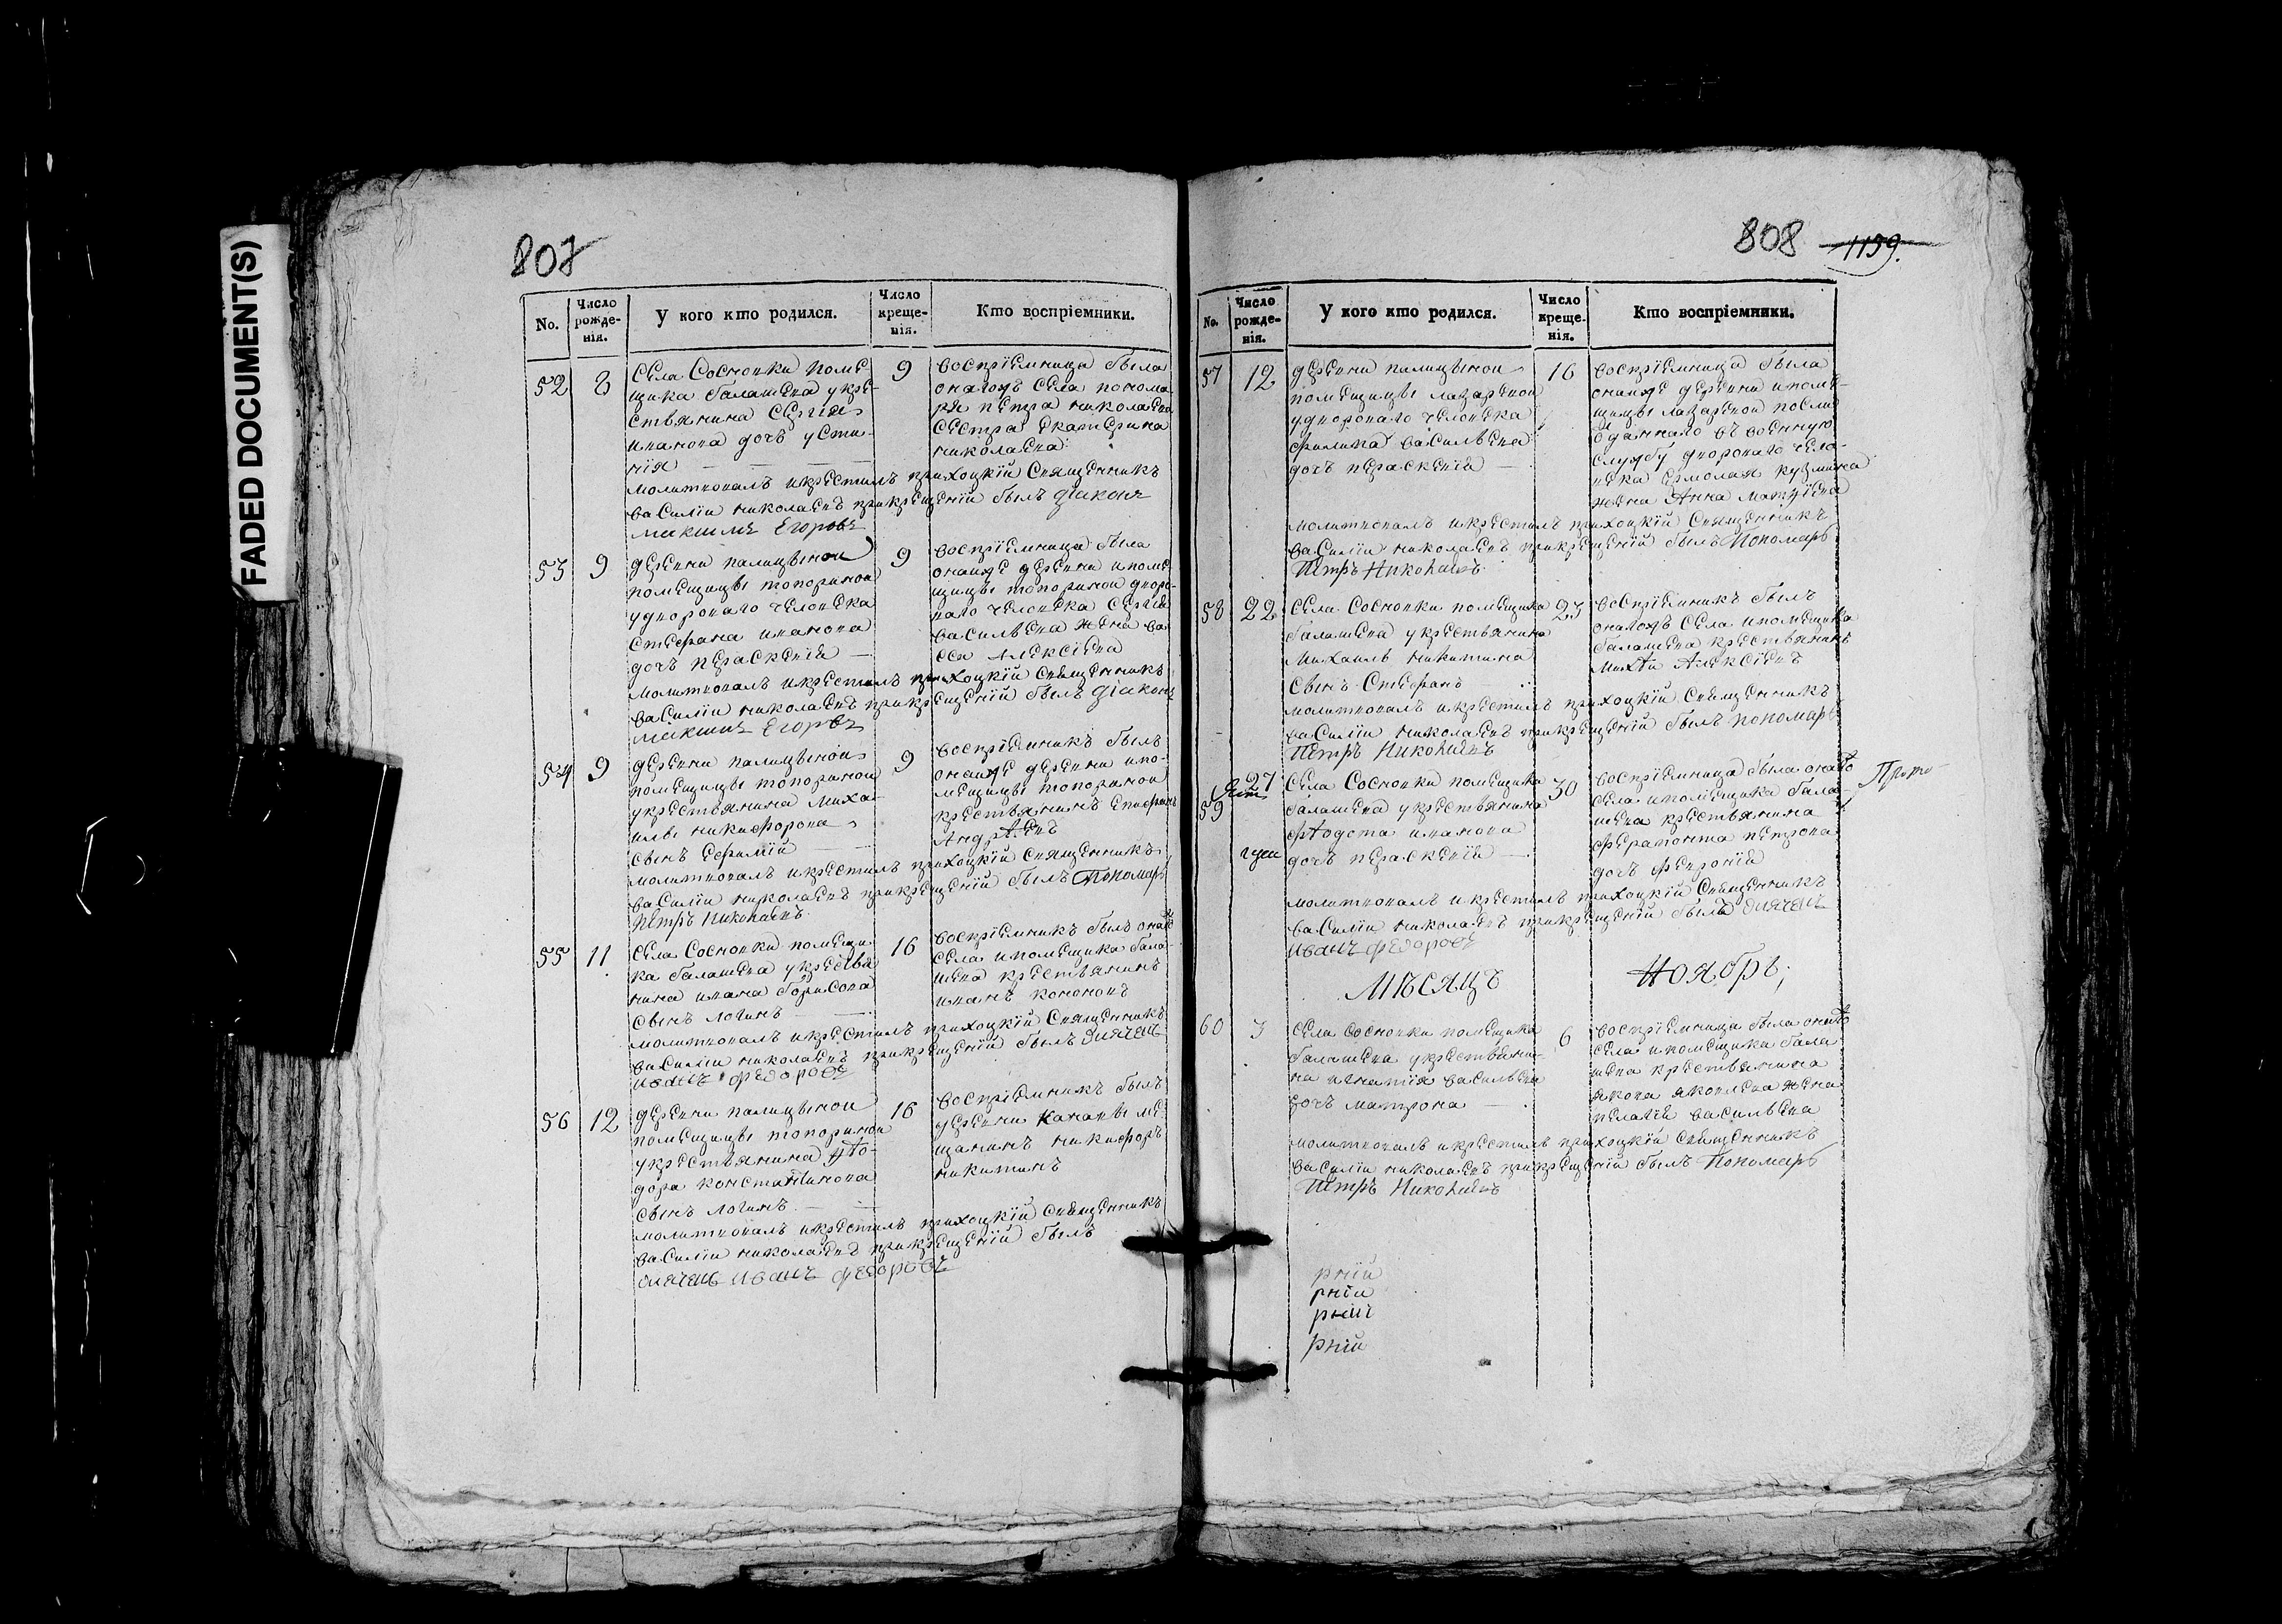 FADED DOCUMENT(S)
807
No.
Число рожде-нія.
У кого кто родился.
Число креще-нія.
Кто воспріемники.
52 8
села Сосновки поме
щика балашева укре
стьянина сергия
иванова дочь усти
ния
9
воспріемница была
оногожъ села понома
ря петра николаева
сестра екатерина
николаева
молитвовалъ икрестилъ прихоцкій священникъ
василіи николаевъ прикрещеніи былъ діаконъ
максимъ Егоровъ
53 9
деревни палицыной
помещицы топориной
удворового человека
стефана иванова
дочь параскевия
9
воспріемница была
онаиже деревни ипоме
щицы топориной дворо
вого человека сергея
васильева жена ва
сса алексіева
молитвовалъ икрестилъ прихоцкій священникъ
василіи николаевъ прикрещеніи былъ діаконъ
максимъ Егоровъ
54 9
деревни палицыной
помещицы топориной
укрестьянина миха
илы никифорова
сынъ ефимій
9
воспріемникъ былъ
онаиже деревни ипо
мещицы топориной
крестьянинъ епифанъ
Андреевъ
молитвовалъ икрестилъ прихоцкій священникъ
василіи николаевъ прикрещеніи былъ Пономарь
Петръ Николаевъ
55 11
села Сосновки помещи
ка балашева укрестья
нина ивана борисова
сынъ логинъ
16
воспріемникъ былъ оного
села ипомещика бала
шева крестьянинъ
иванъ кононовъ
молитвовалъ икрестилъ прихоцкій священникъ
василіи николаевъ прикрещеніи былъ дьячекъ
иванъ федоровъ
56 12
деревни палицыной
помещицы топориной
укрестьянина фѣо-
дора константинова
сынъ логинъ
16
воспріемникъ былъ
деревни канавы ме
щанинъ никифоръ
никитинъ
молитвовалъ икрестилъ прихоцкій священникъ
василіи николаевъ прикрещеніи былъ
дьячекъ иванъ федоровъ
808 1159.
No.
Число рожде-нія.
У кого кто родился.
Число креще-нія.
Кто воспріемники.
57 12
деревни палицыной
помещицы лазаревой
удворового человека
филипа васильева
дочь параскевия
16
воспріемница была
онаиже деревни ипоме-
щицы лазаревой после
отданного въ военную
службу дворового чело-
века ермолая кузмина
жена Анна матвіева
молитвовалъ икрестилъ прихоцкій священникъ
василіи николаевъ прикрещеніи былъ Пономарь
Петръ Николаевъ
58 22
села Сосновки помещика
балашева укрестьянина
михаилы никитина
сынъ Стефанъ
23
воспріемникъ былъ
оногожъ села ипомещика
балашева крестьянинъ
Алексіевъ
молитвовалъ икрестилъ прихоцкій священникъ
василіи николаевъ прикрещеніи былъ пономарь
Петръ Николаевъ
59 27
села Сосновки помещика
балашева укрестьянина
фѣодота иванова
дочь параскевия
30
воспріемница была оного
села ипомещика бала
шева крестьянина
ферапонта петрова
дочь феврония
молитвовалъ икрестилъ прихоцкій священникъ
василіи николаевъ прикрещеніи былъ дьячекъ
иванъ федоровъ
Мѣсяцъ Ноябрь;
60 3
села сосновки помещика
балашева укрестьяни
на игнатія васильева
дочь матрона
6
воспріемница была оного
села ипомещика бала
шева крестьянина
якова яковлева жена
пелагея васильева
молитвовалъ икрестилъ прихоцкій священникъ
василіи николаевъ прикрещеніи былъ Пономарь
Петръ Николаевъ